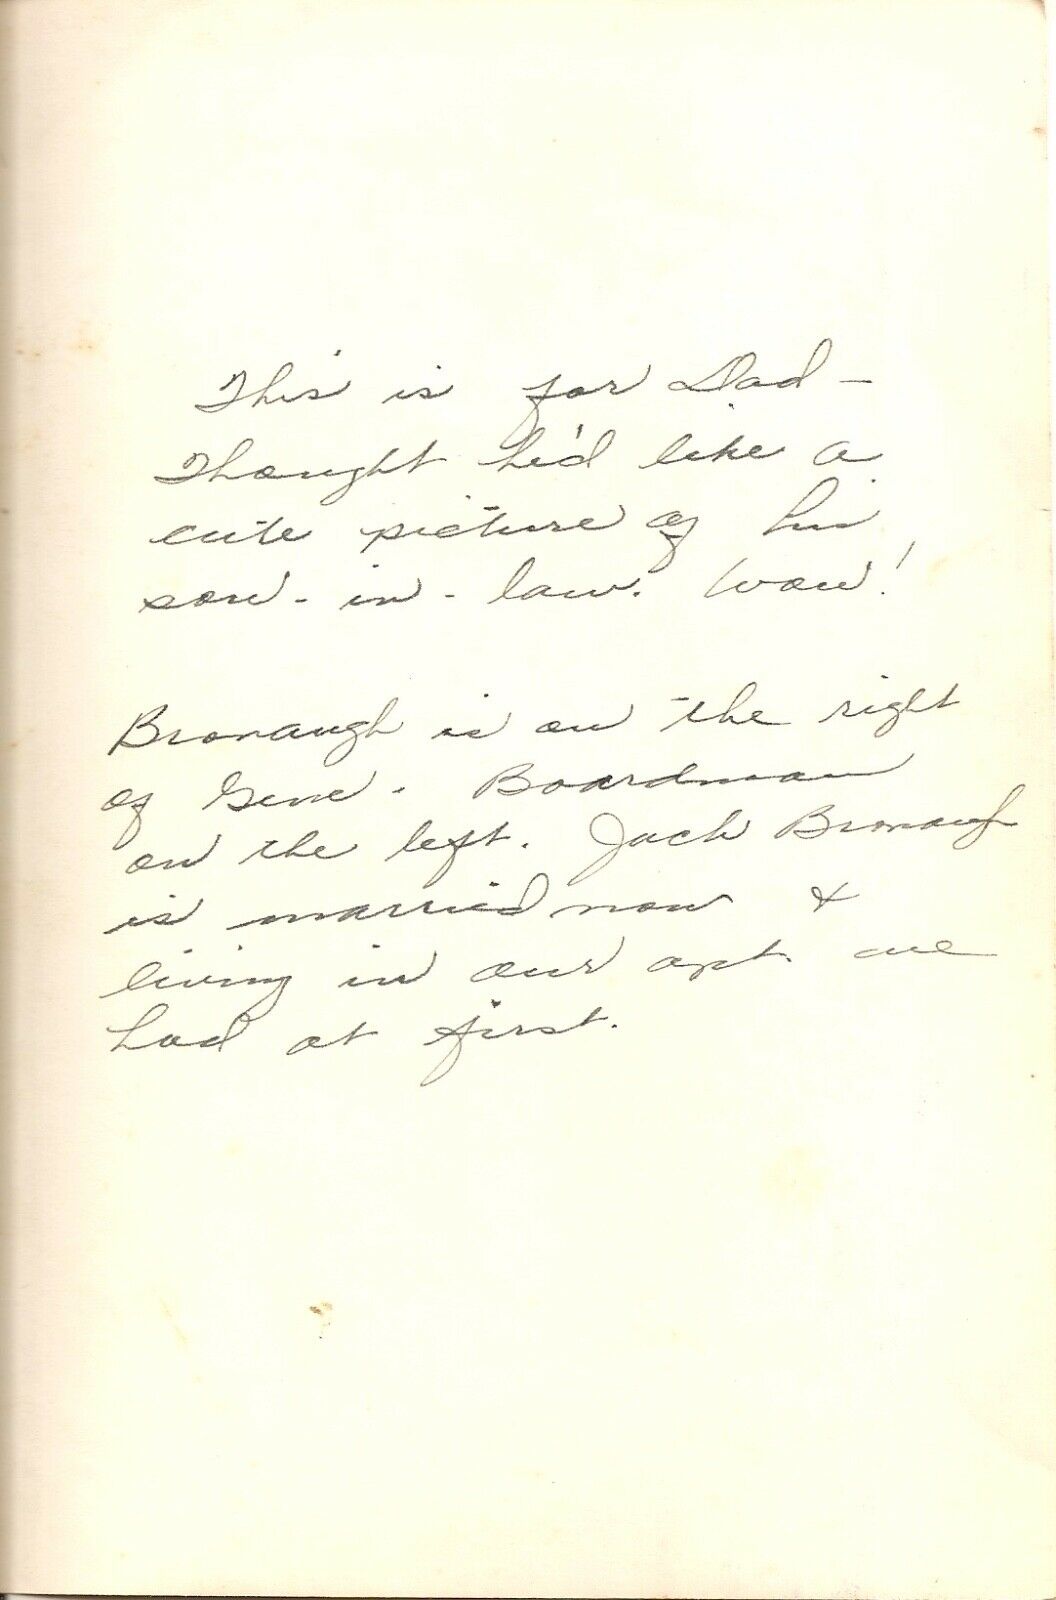 This is for Dad -
Thought he'd like a
cute picture of his
son-in-law. Wow!
Bronaugh is on the right
of Gene. Boardman
on the left. Jack Bronaugh
is married now &
living in our apt. we
had at first.